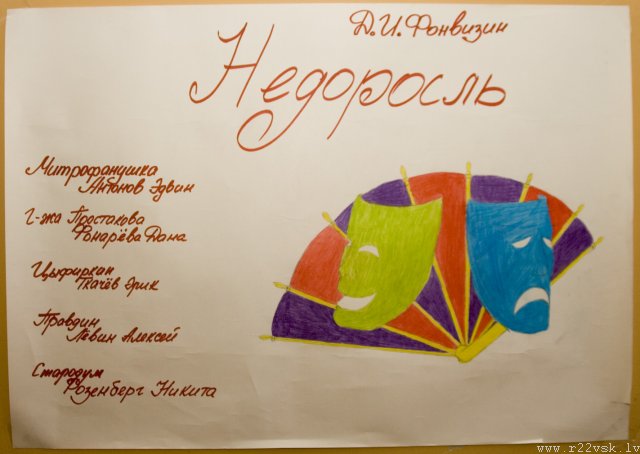 Д.И. Фонвизин
Недоросль
Митрофанушка
Антонов Эдвин
Г-жа Простакова
Фонарёва Дана
Цыфиркин
Ткачёв Эрик
Правдин
Левин Алексей
Стародум
Розенберг Никита
www.r22vsk.lv